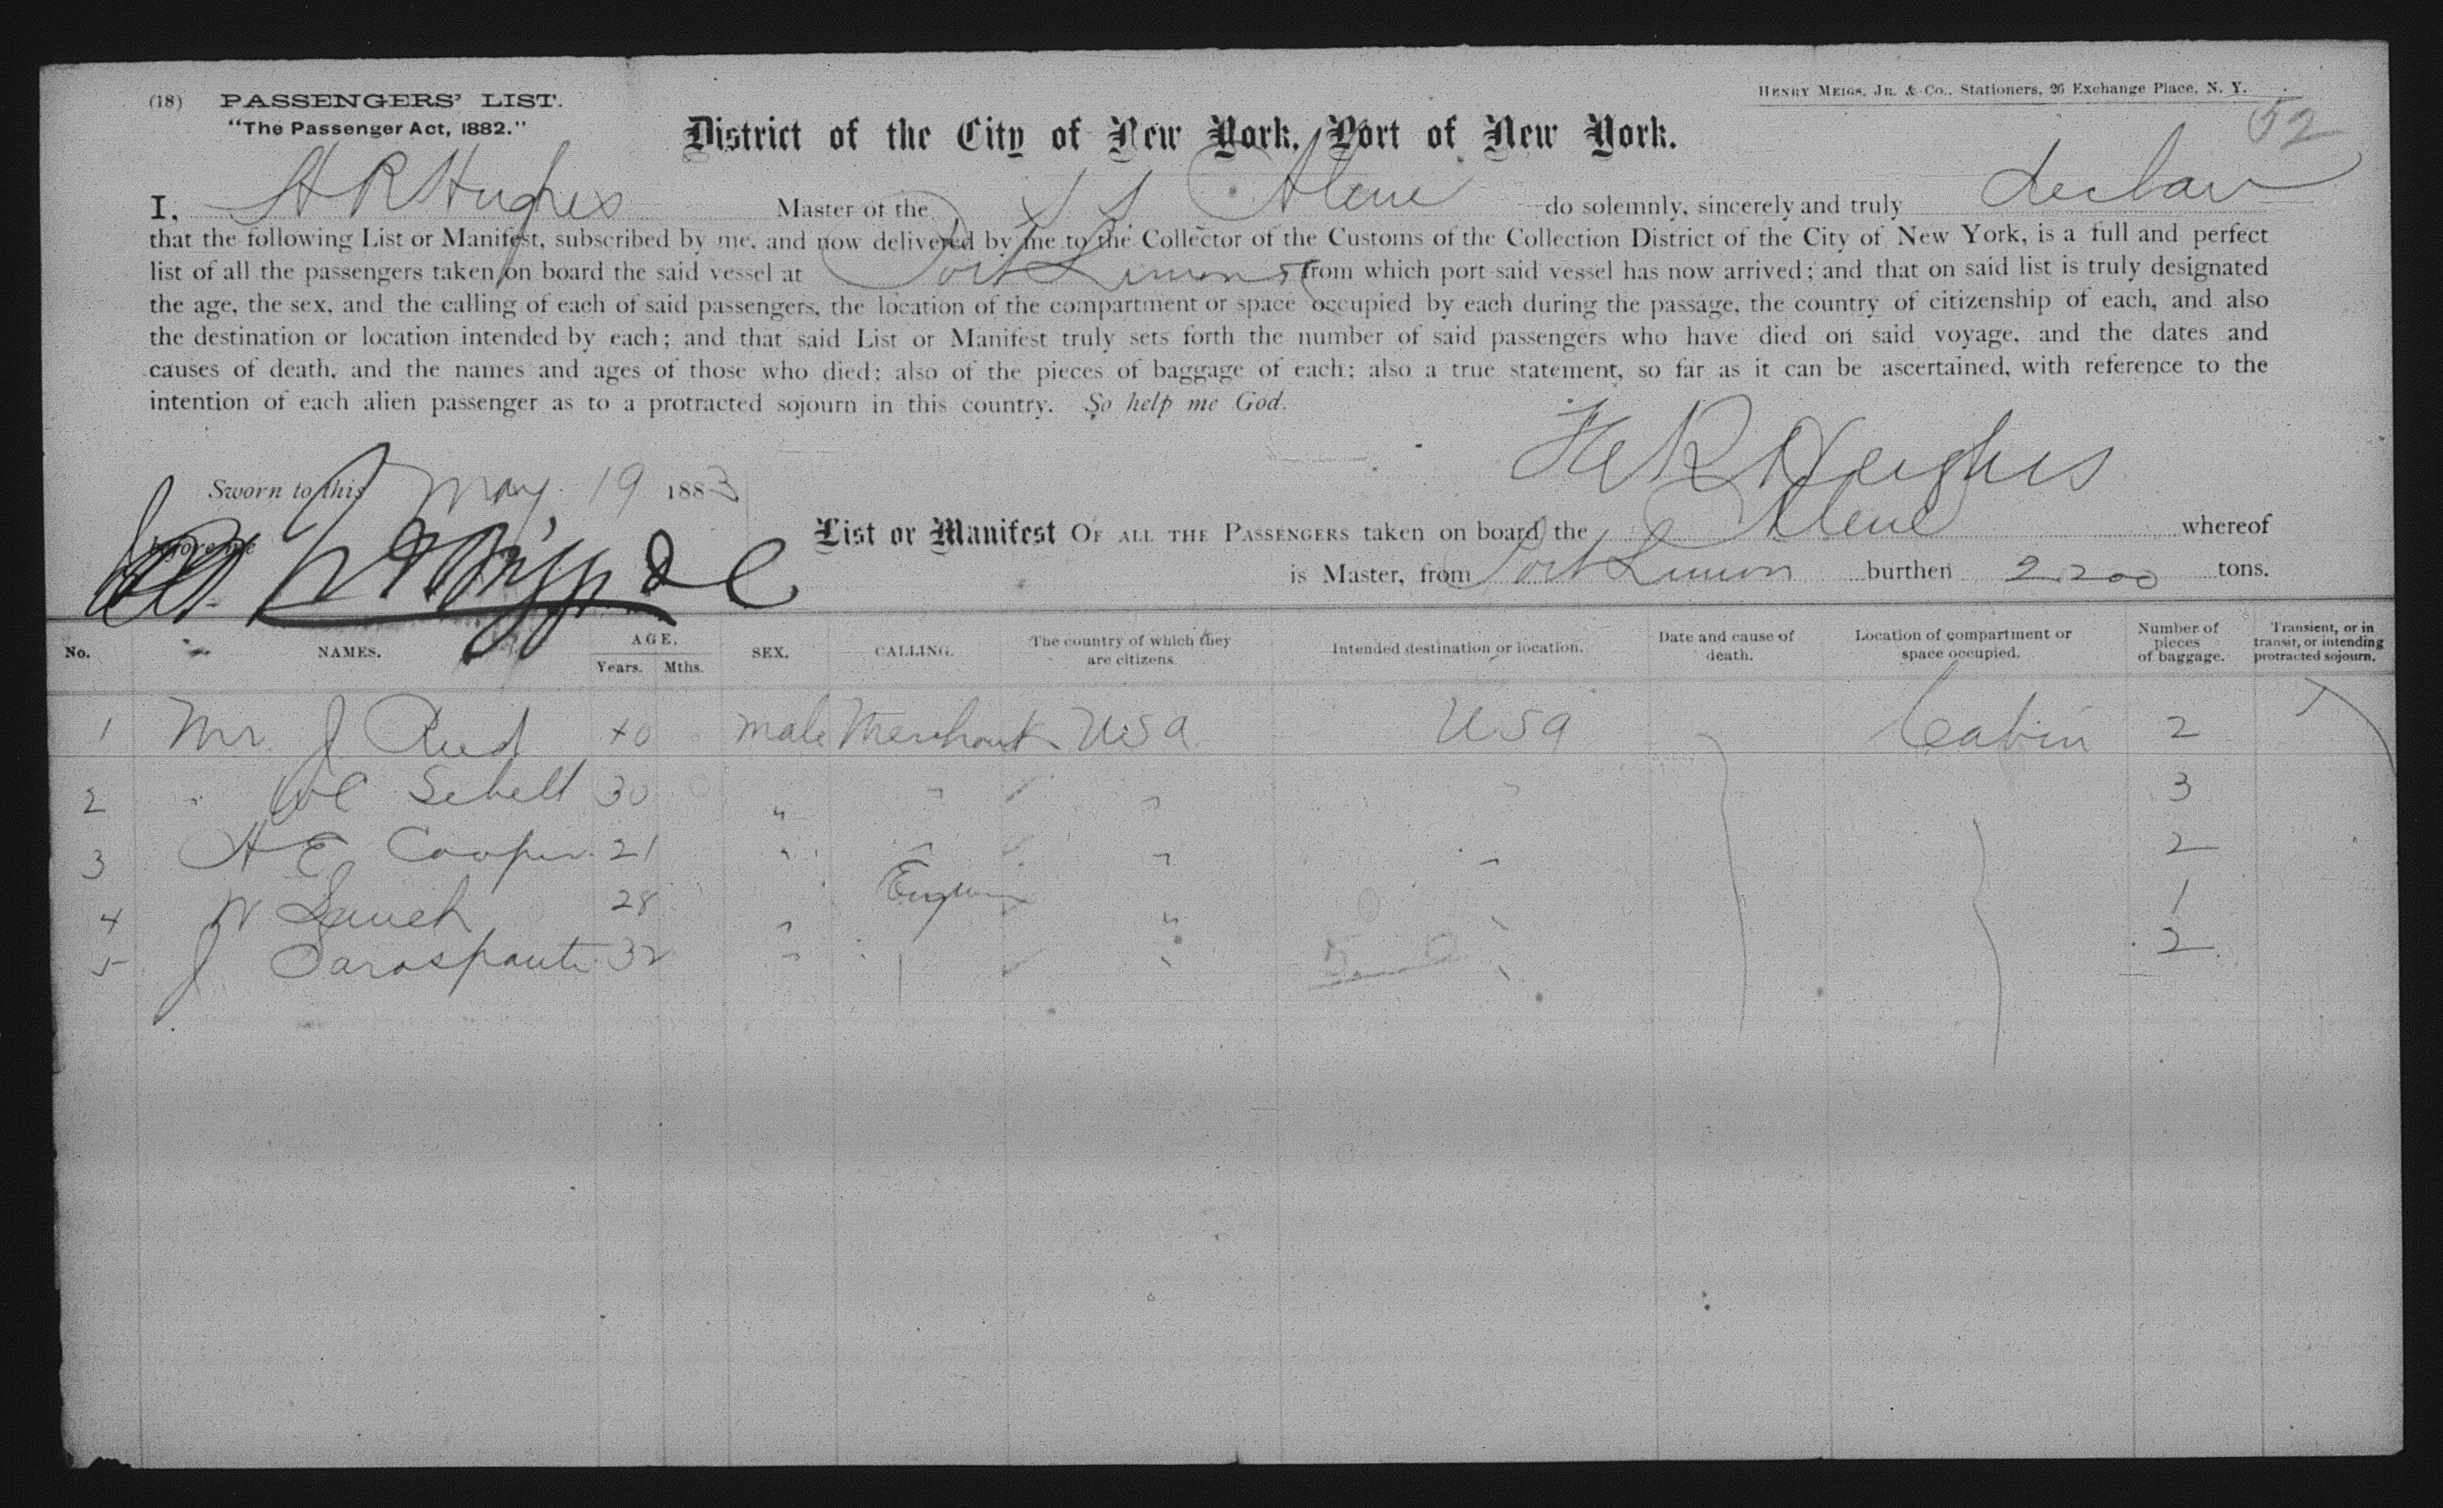 (18) PASSENGERS' LIST.
"The Passenger Act, 1882."
HENRY MEIGS, JR. & CO., Stationers, 26 Exchange Place, N. Y.
52
District of the City of New York, Port of New York.
I, H R Hughes Master of the SS Alene do solemnly, sincerely and truly declare
that the following List or Manifest, subscribed by me, and now delivered by me to the Collector of the Customs of the Collection District of the City of New York, is a full and perfect
list of all the passengers taken on board the said vessel at Port Limon from which port said vessel has now arrived; and that on said list is truly designated
the age, the sex, and the calling of each of said passengers, the location of the compartment or space occupied by each during the passage, the country of citizenship of each, and also
the destination or location intended by each; and that said List or Manifest truly sets forth the number of said passengers who have died on said voyage, and the dates and
causes of death, and the names and ages of those who died; also of the pieces of baggage of each; also a true statement, so far as it can be ascertained, with reference to the
intention of each alien passenger as to a protracted sojourn in this country. So help me God.
H R Hughes
Sworn to this May 19 1883
before me
List or Manifest OF ALL THE PASSENGERS taken on board the Alene whereof
is Master, from Port Limon burthen 2200 tons.
No. NAMES. AGE. Years. Mths. SEX. CALLING. The country of which they are citizens. Intended destination or location. Date and cause of death. Location of compartment or space occupied. Number of pieces of baggage. Transient, or in transit, or intending protracted sojourn.
1 Mr. J Reed 40 male Merchant USA USA Cabin 2
2 " Schell 30 " " " " 3
3 H E Cooper 21 " " " " 2
4 W 28 " " " 1
5 J 32 " " " 2